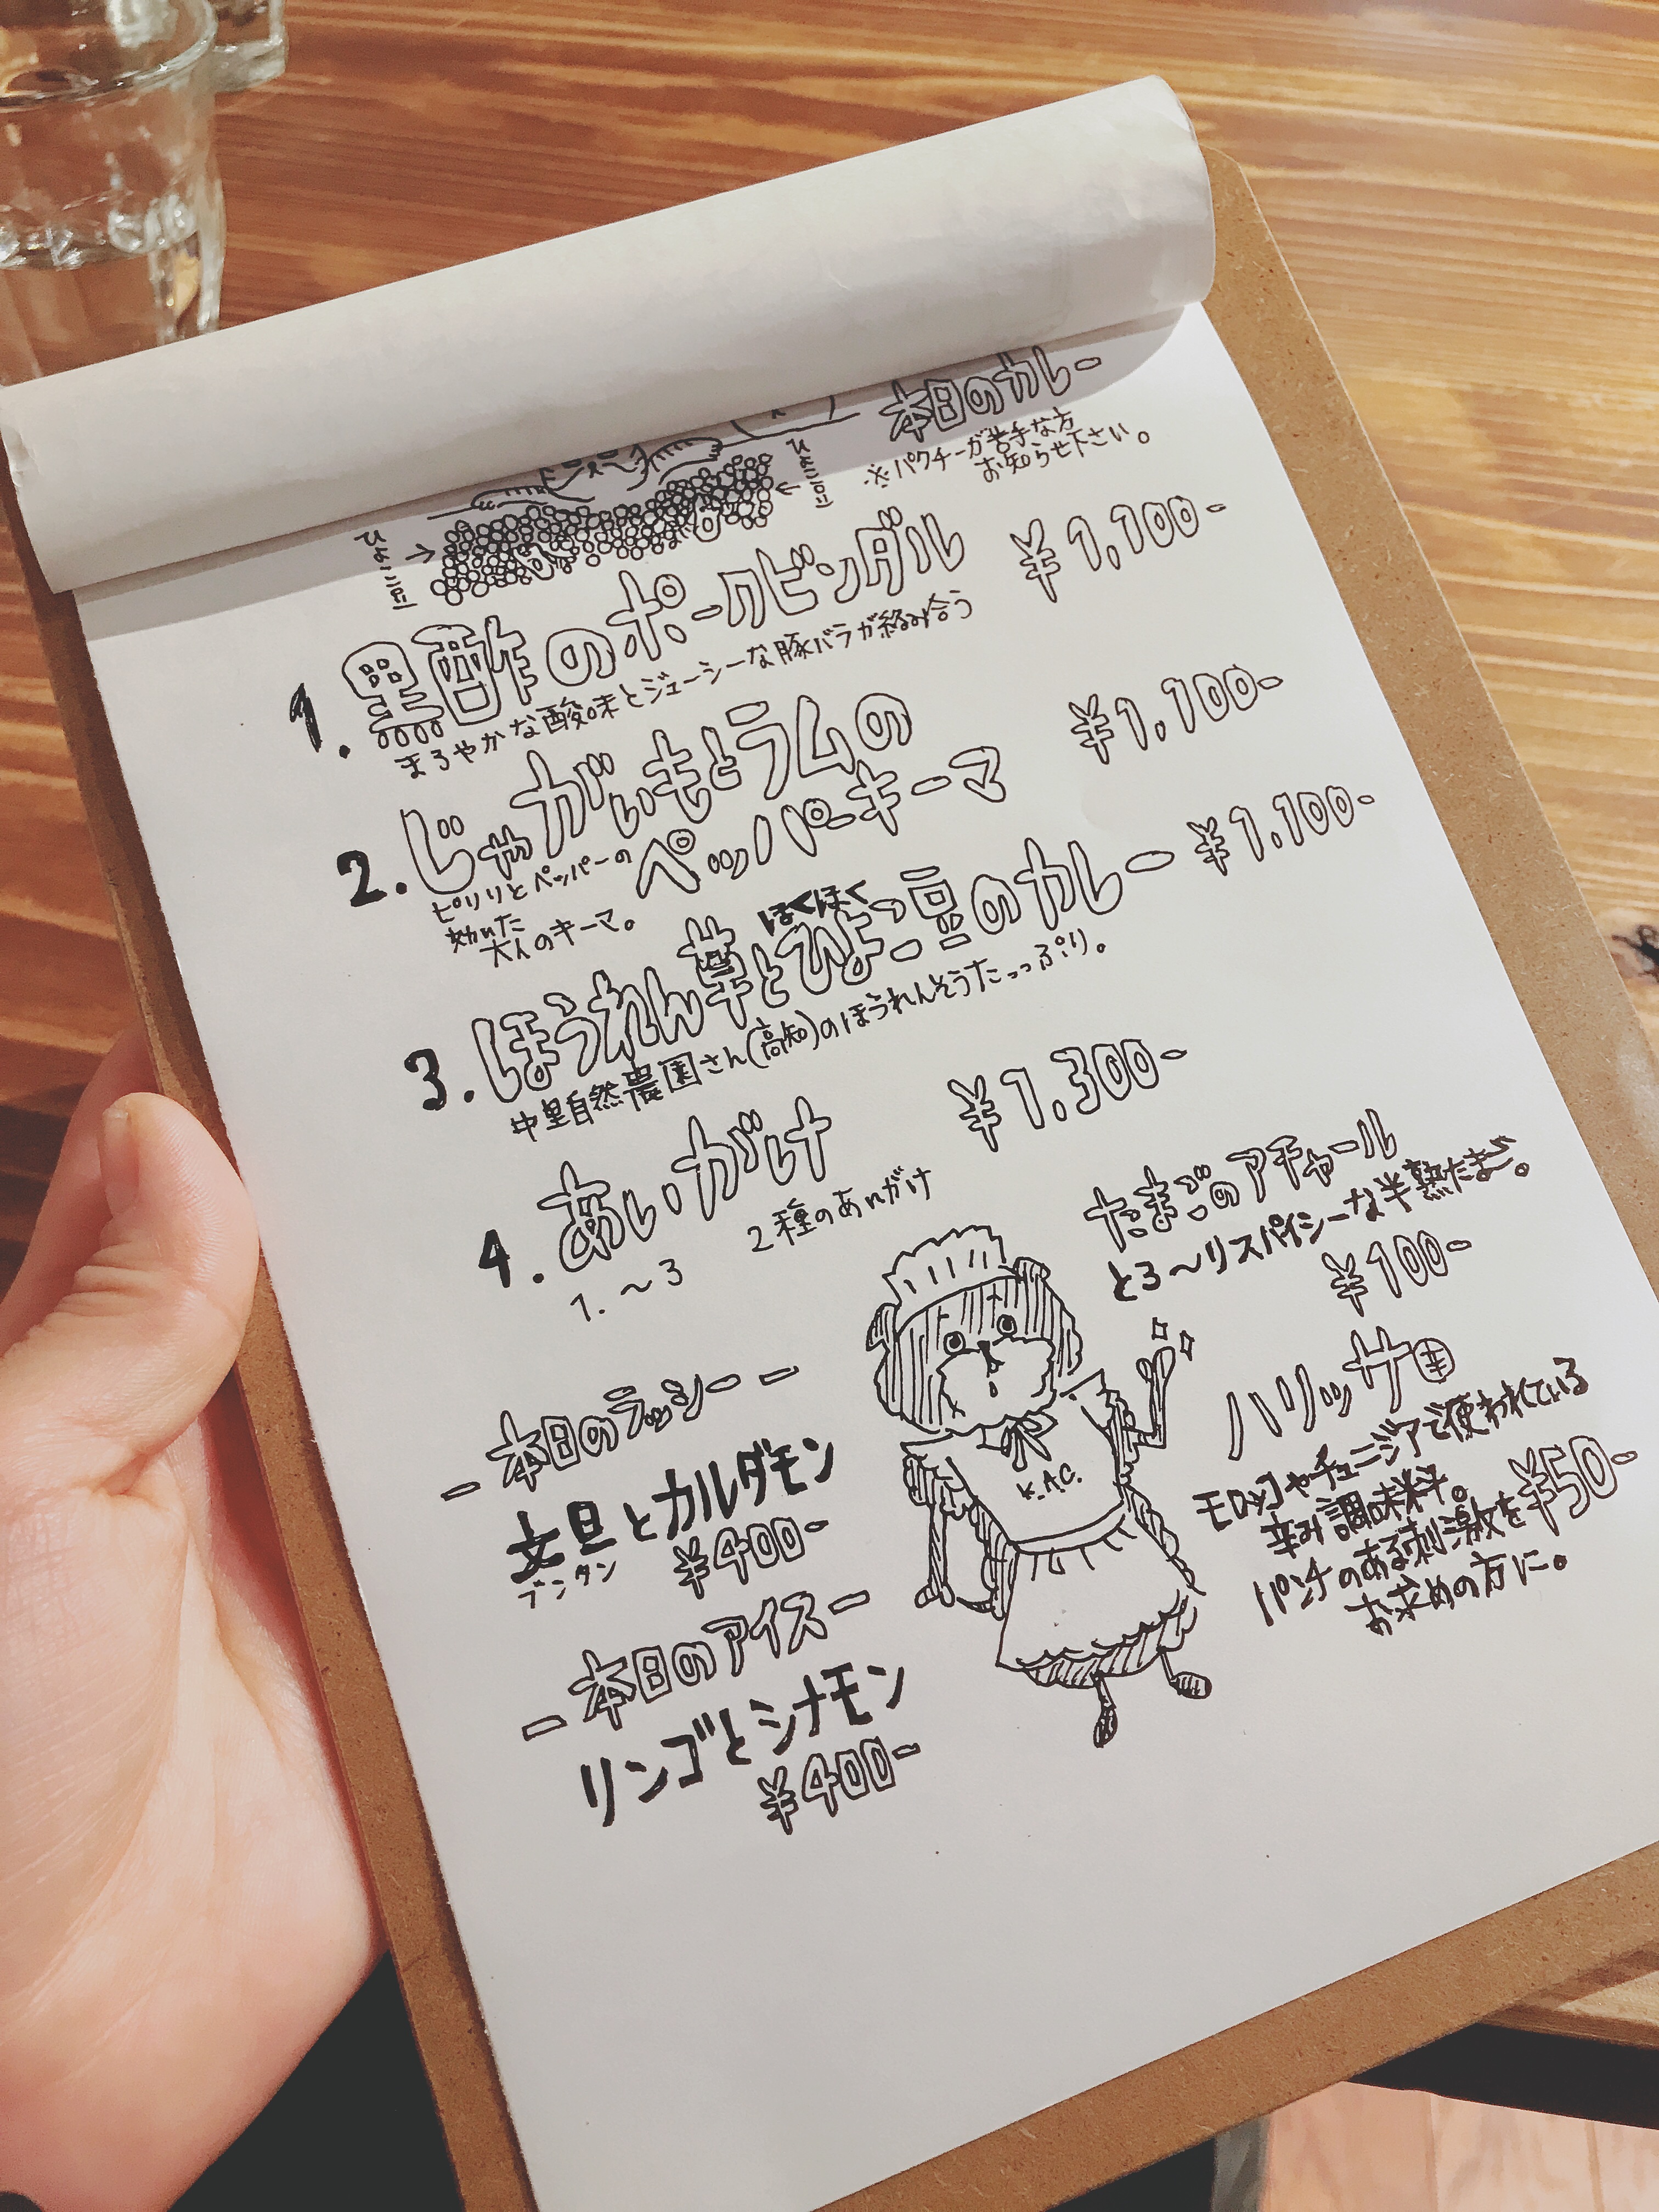 本日のカレー
※パクチーが苦手な方
お知らせ下さい。
ひよこ豆
ひよこ豆
1. 黒酢のポークビンダル ¥1,100-
まろやかな酸味とジューシーな豚バラが絡み合う
2. じゃがいもとラムの
ペッパーキーマ ¥1.100-
ピリリとペッパーの
効いた
大人のキーマ。
ほくほく
3. ほうれん草とひよこ豆のカレー ¥1.100-
中里自然農園さん(高知)のほうれんそうたっっぷり。
4. あいがけ ¥1.300-
1.〜3 2種のあいがけ
たまごのアチャール
とろ〜りスパイシーな半熟たまご。
¥100-
ハリッサ辛
モロッコやチュニジアで使われている
辛み調味料。
パンチのある刺激を
お求めの方に。
¥50-
K.A.C.
ー本日のラッシーー
文旦とカルダモン
ブンタン
¥400-
ー本日のアイスー
リンゴとシナモン
¥400-